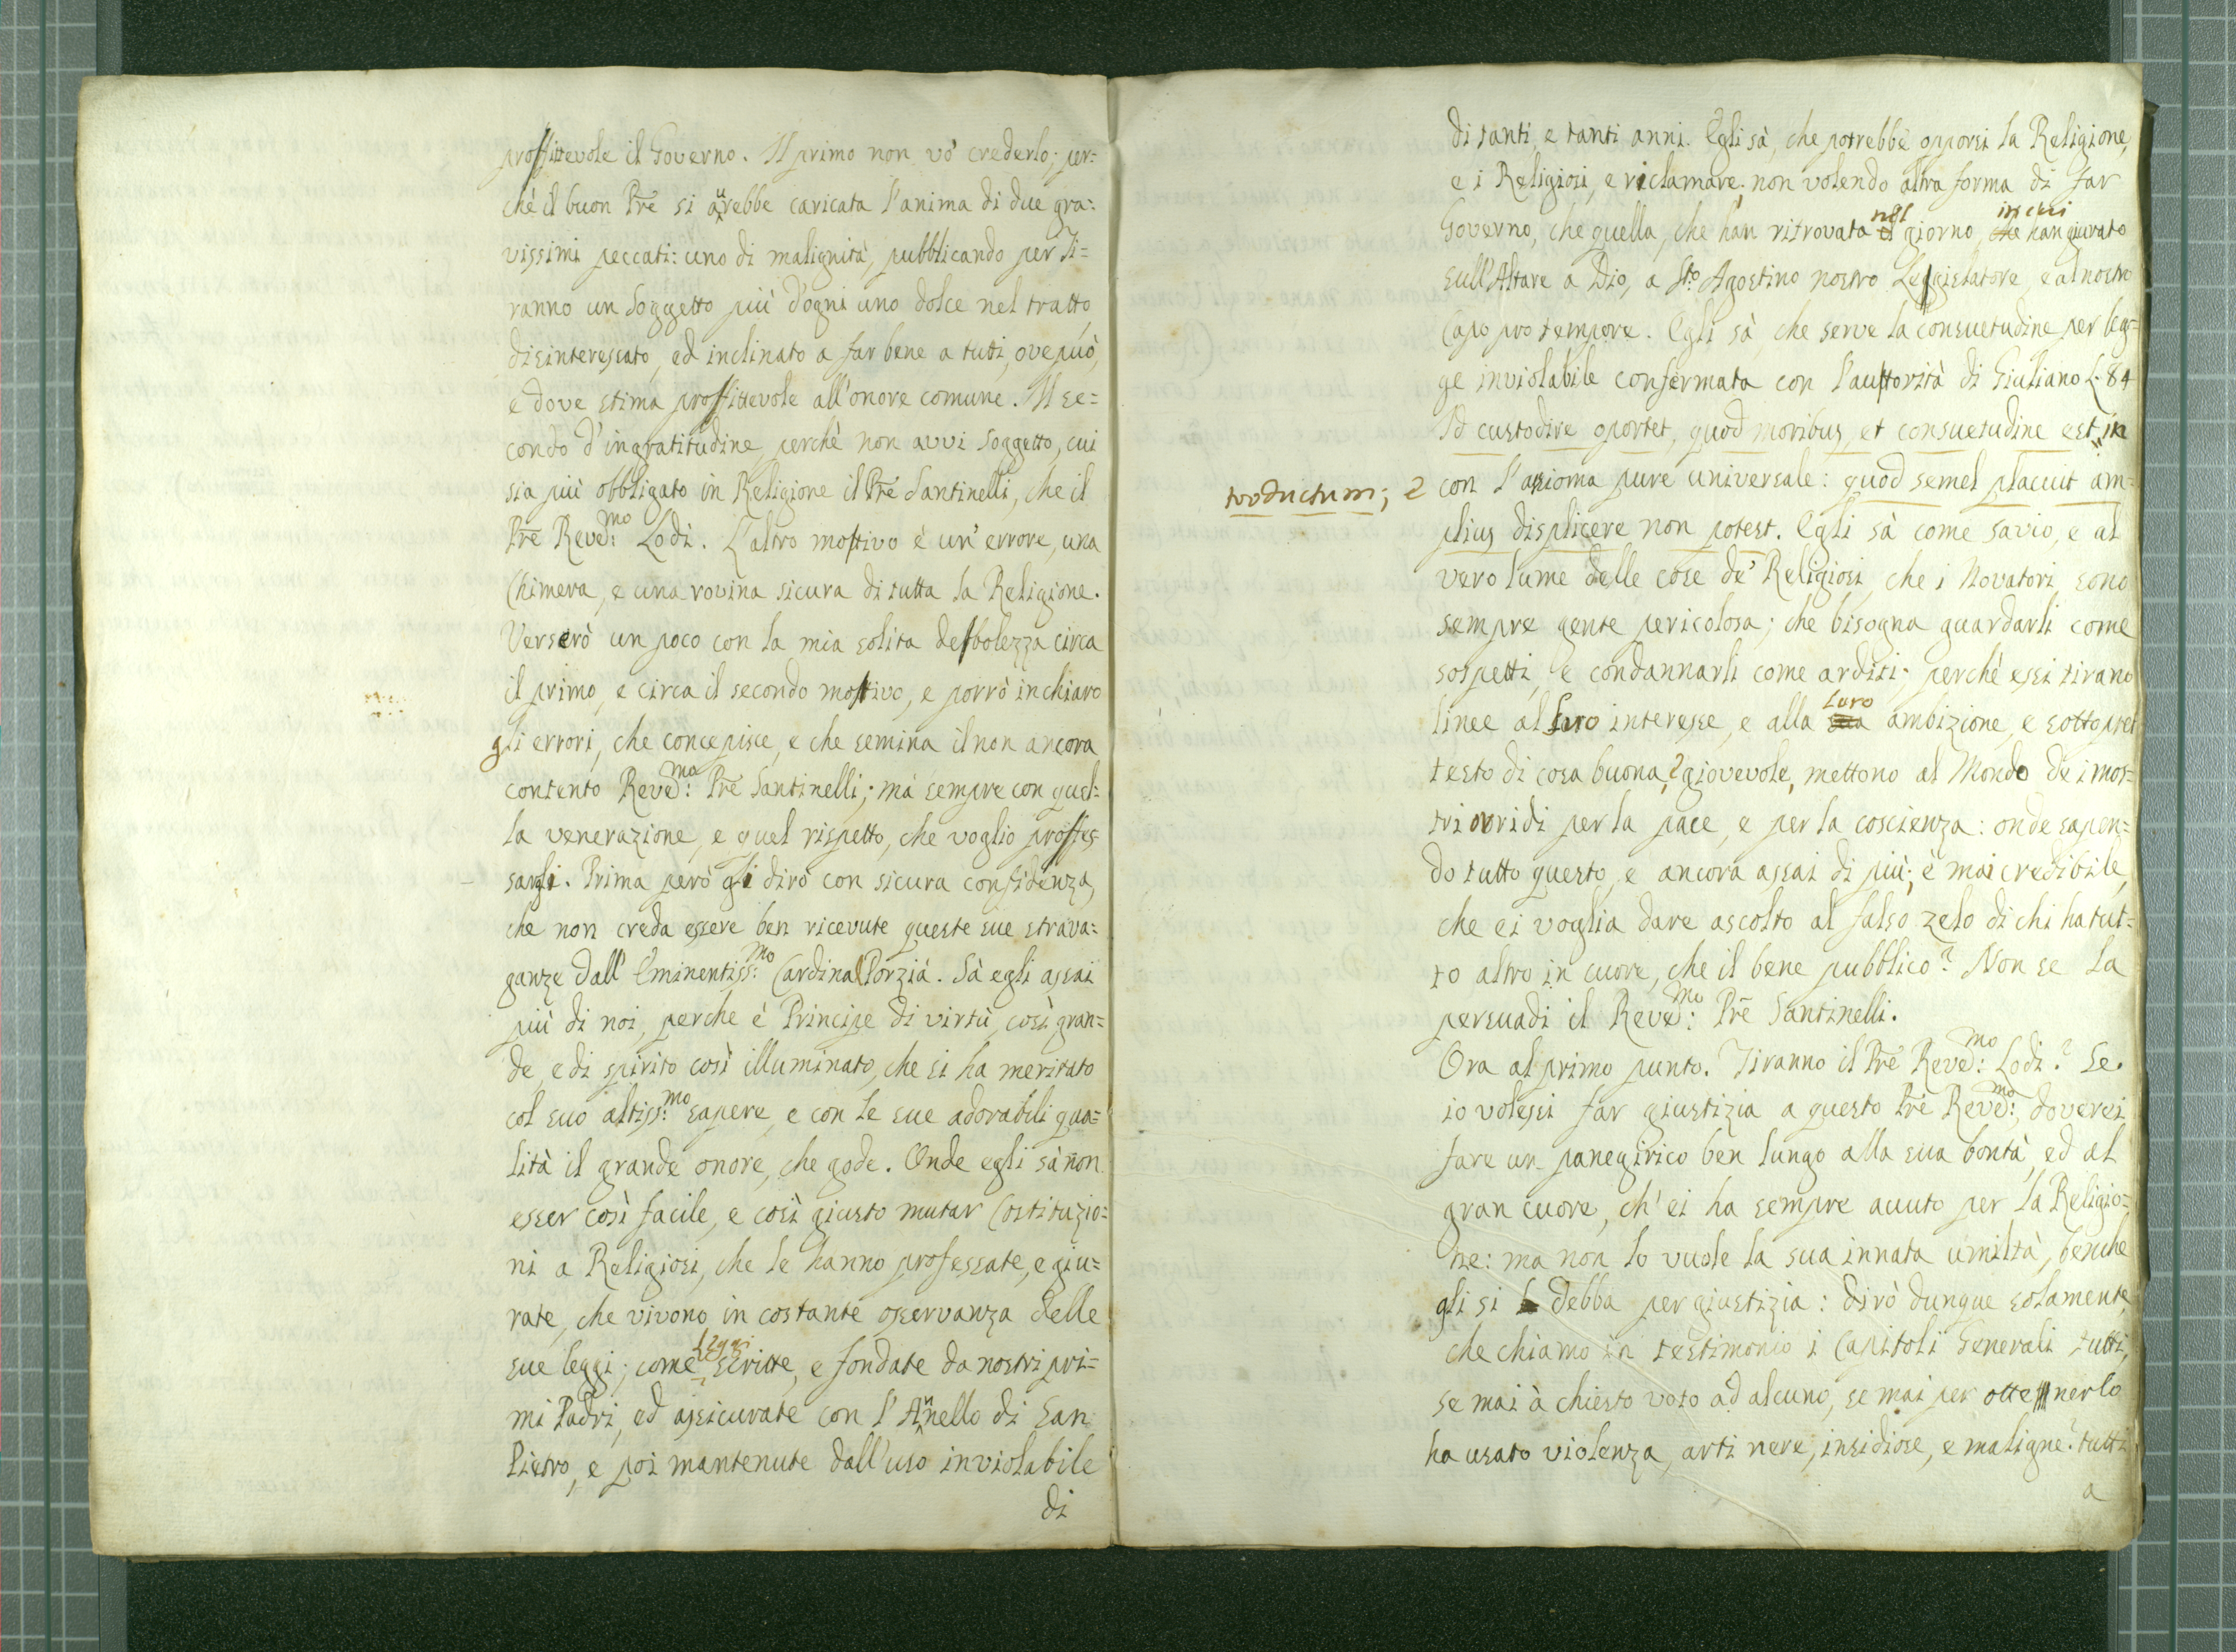 proffittevole il Governo. Il primo non vò crederlo; per=
chè il buon Pre si aurebbe caricata l'anima di due gra=
vissimi peccati: uno di malignità, pubblicando per Ti=
ranno un Soggetto più d'ogni uno dolce nel tratto
disinteressato, ed inclinato a far bene a tutti, ove può,
e dove stima proffittevole all'onore comune. Il se=
condo d'ingratitudine, perchè non avvi Soggetto, cui
sia più obbligato in Religione il Pre Santinelli, che il
Pre Reved:mo Lodi. L'altro motivo è un' errore, una
Chimera, e una rovina sicura di tutta la Religione.
Verserò un poco con la mia solita debolezza circa
il primo, e circa il secondo motivo, e porrò in chiaro
gli errori, che concepisce, e che semina il non ancora
contento Reved:mo Pre Santinelli; mà sempre con quel=
la venerazione, e quel rispetto, che voglio proffes
sargli. Prima però gli dirò con sicura confidenza,
che non creda essere ben ricevute queste sue strava=
ganze dall' Eminentiss:mo Cardinal Porzià. Sà egli assai
più di noi, perche è Principe di virtù così gran=
de, e di spirito così illuminato, che si ha meritato
col suo altiss:mo sapere, e con le sue adorabili qua=
lità il grande onore, che gode. Onde egli sà non
esser così facile, e così giusto mutar Costituzio=
ni a Religiosi, che le hanno professate, e giu=
rate, che vivono in costante osservanza delle
sue leggi; come Leggi scritte, e fondate da nostri pri=
mi Padri, ed assicurate con l'Annello di San
Pietro, e poi mantenute dall'uso inviolabile
di
di tanti, e tanti anni. Egli sà, che potrebbe opporsi la Religione,
e i Religiosi, e riclamare; non volendo altra forma di far
Governo, che quella, che han ritrovata nel giorno, in cui han giurato
sull'Altare a Dio, a Sto. Agostino nostro Leggislatore, e al nostro
Capo pro tempore. Egli sà che serve la consuetudine per leg=
ge inviolabile confermata con l'auttorità di Giuliano L. 84
Id custodire oportet, quod moribus, et consuetudine est in
troductum; e con l'assioma pure universale: quod semel placuit am=
plius displicere non potest. Egli sà come savio, e al
vero lume delle cose de' Religiosi, che i Novatori sono
sempre gente pericolosa; che bisogna guardarli come
sospetti, e condannarli come arditi; perchè essi tirano
linee al loro interesse, e alla sua loro ambizione, e sotto pret
testo di cosa buona, e giovevole, mettono al Mondo de i mos=
tri orridi per la pace, e per la coscienza: onde sapen=
do tutto questo, e ancora assai di più; è mai credibile,
che ei voglia dare ascolto al falso zelo di chi ha tut=
to altro in cuore, che il bene pubblico? Non se la
persuadi il Reved:mo Pre Santinelli.
Ora al primo punto. Tiranno il Pre Reved:mo Lodi? Se
io volessi far giustizia a questo Pre Reved:mo, doverei
fare un panegirico ben lungo alla sua bontà, ed al
gran cuore, ch' ei ha sempre avuto per la Religio=
ne: ma non lo vuole la sua innata umiltà, benche
gli si debba per giustizia: dirò dunque solamente,
che chiamo in testimonio i Capitoli Generali tutti,
se mai à chiesto voto ad alcuno, se mai per ottenerlo
ha usato violenza, arti nere, insidiose, e maligne? tutti
a